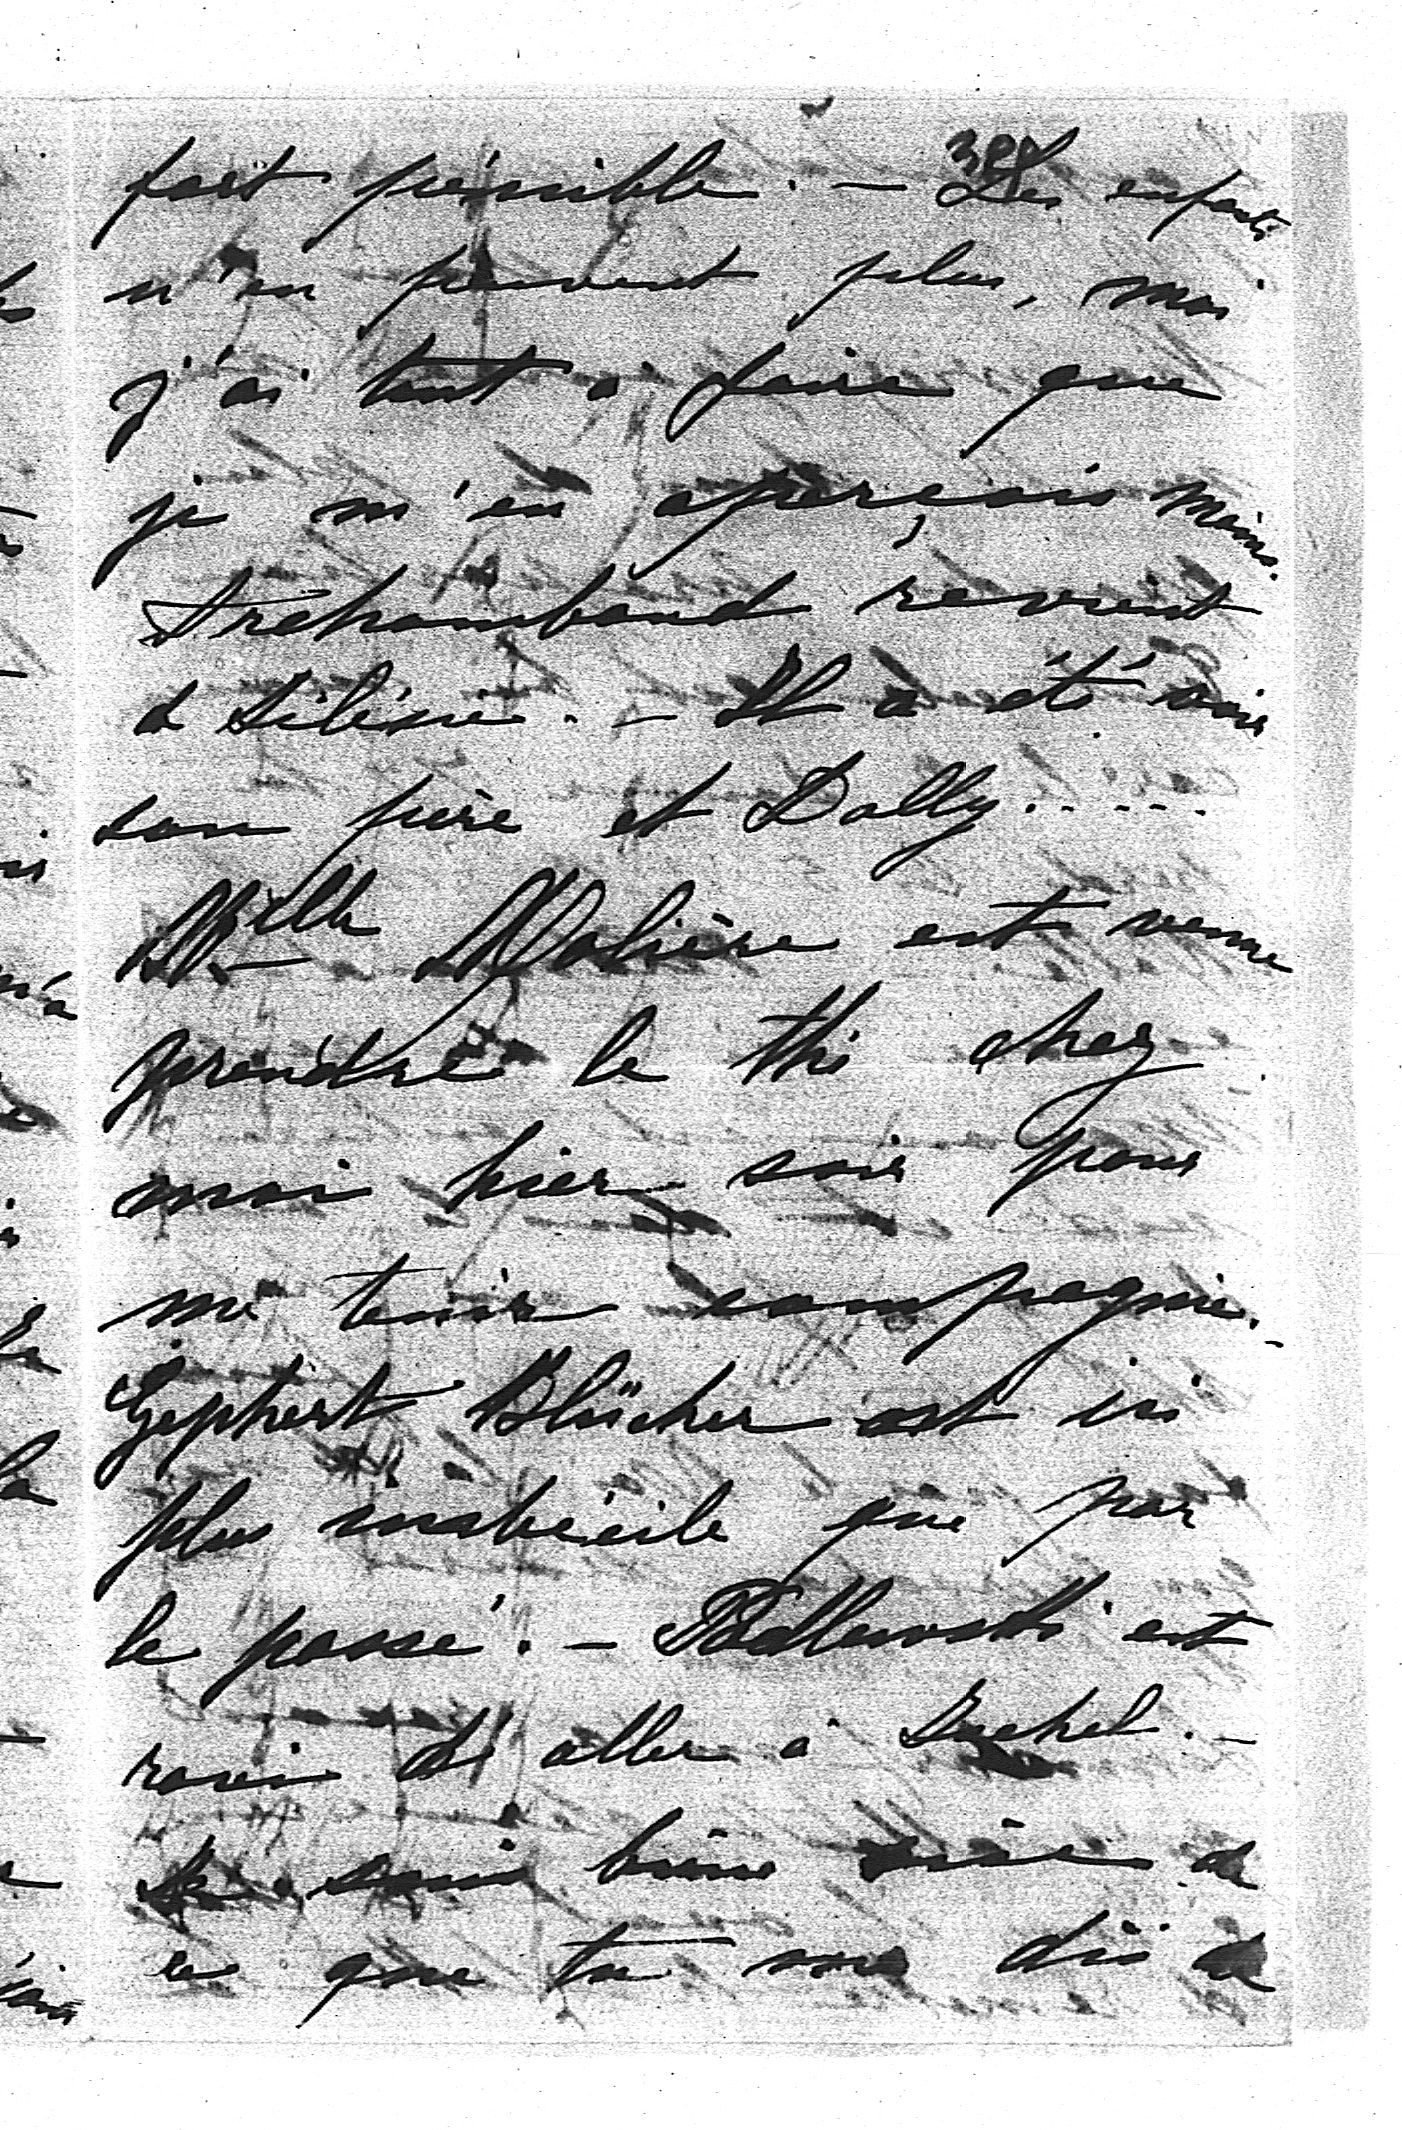 388
fort pénible. — Les enfants
n'en peuvent plus, moi
j'ai tant à faire que
je m'en aperçois moins.
Archambaud revient
d Silésie. — Il a été voir
son père et Dolly.....
Melle Molière est venue
prendre le thé chez
moi hier soir pour
me tenir compagnie. –
Gephert Blücher est ici
plus imbécile que par
le passé. — Radlowski est
ravi d'aller à Suchel. —
Je suis bien aise de
ce que tu me dis de